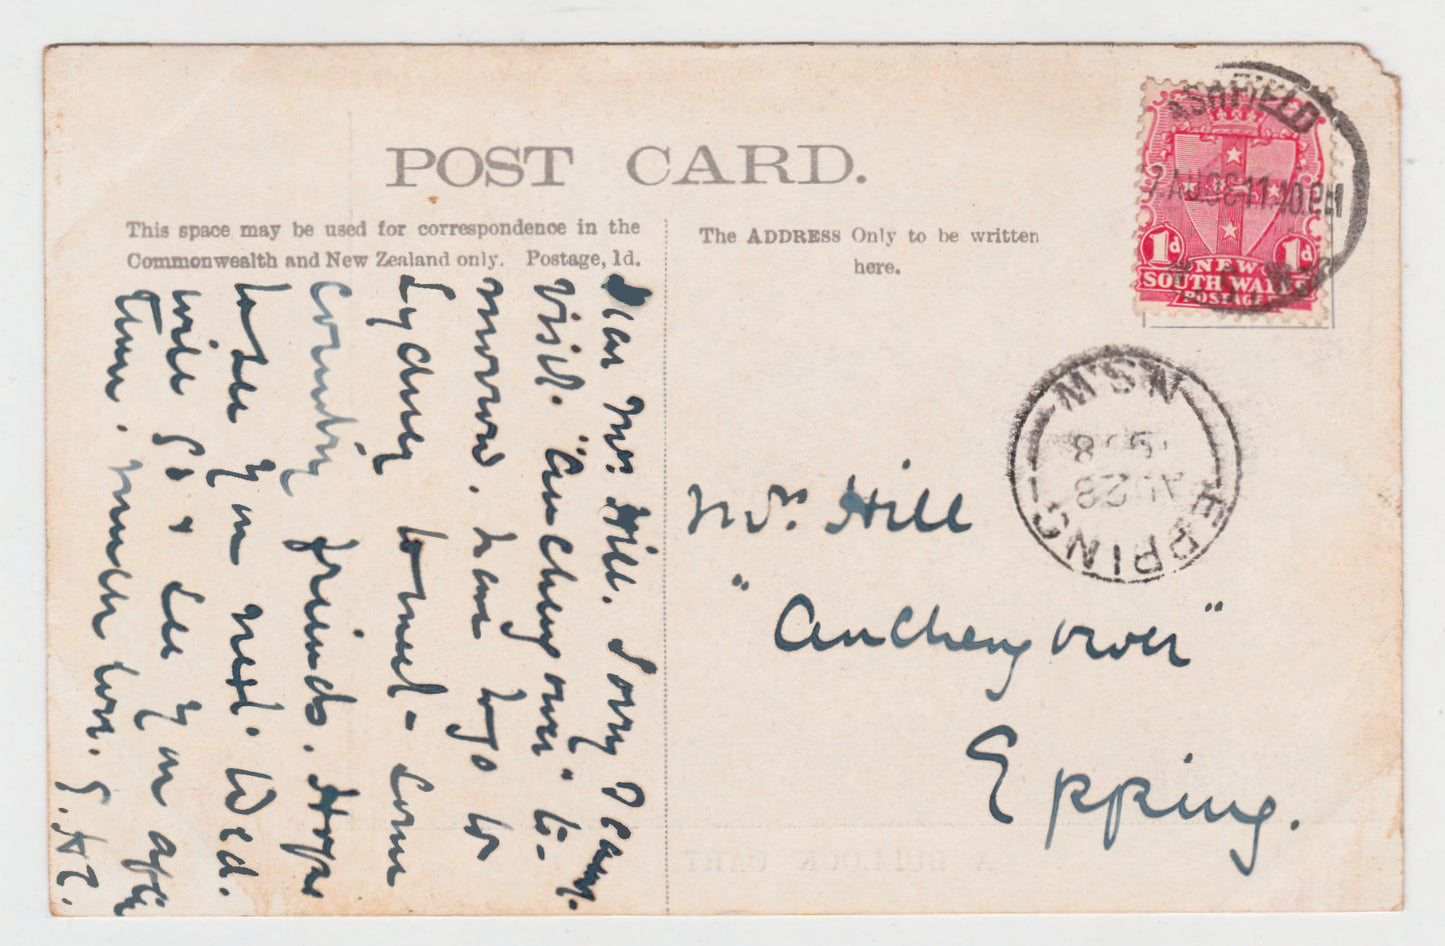 POST CARD.
This space may be used for correspondence in the
Commonwealth and New Zealand only. Postage, 1d.
The ADDRESS Only to be written
here.
ASHFIELD
7 AU 08 11 40 PM
N.S.W
1d 1d
NEW
SOUTH WALES
POSTAGE
N.S.W
8
AU 28
EPPING
Dear Mrs Hill. Sorry I cant
visit. "Auchengower" to-
morrow. have to go to
Sydney to meet some
Country friends. Hope
to be you next Wed.
will go & see you after
Time. much love. G. H.
Mrs. Hill
"Auchengower"
Epping.
A BULLOCK CART.